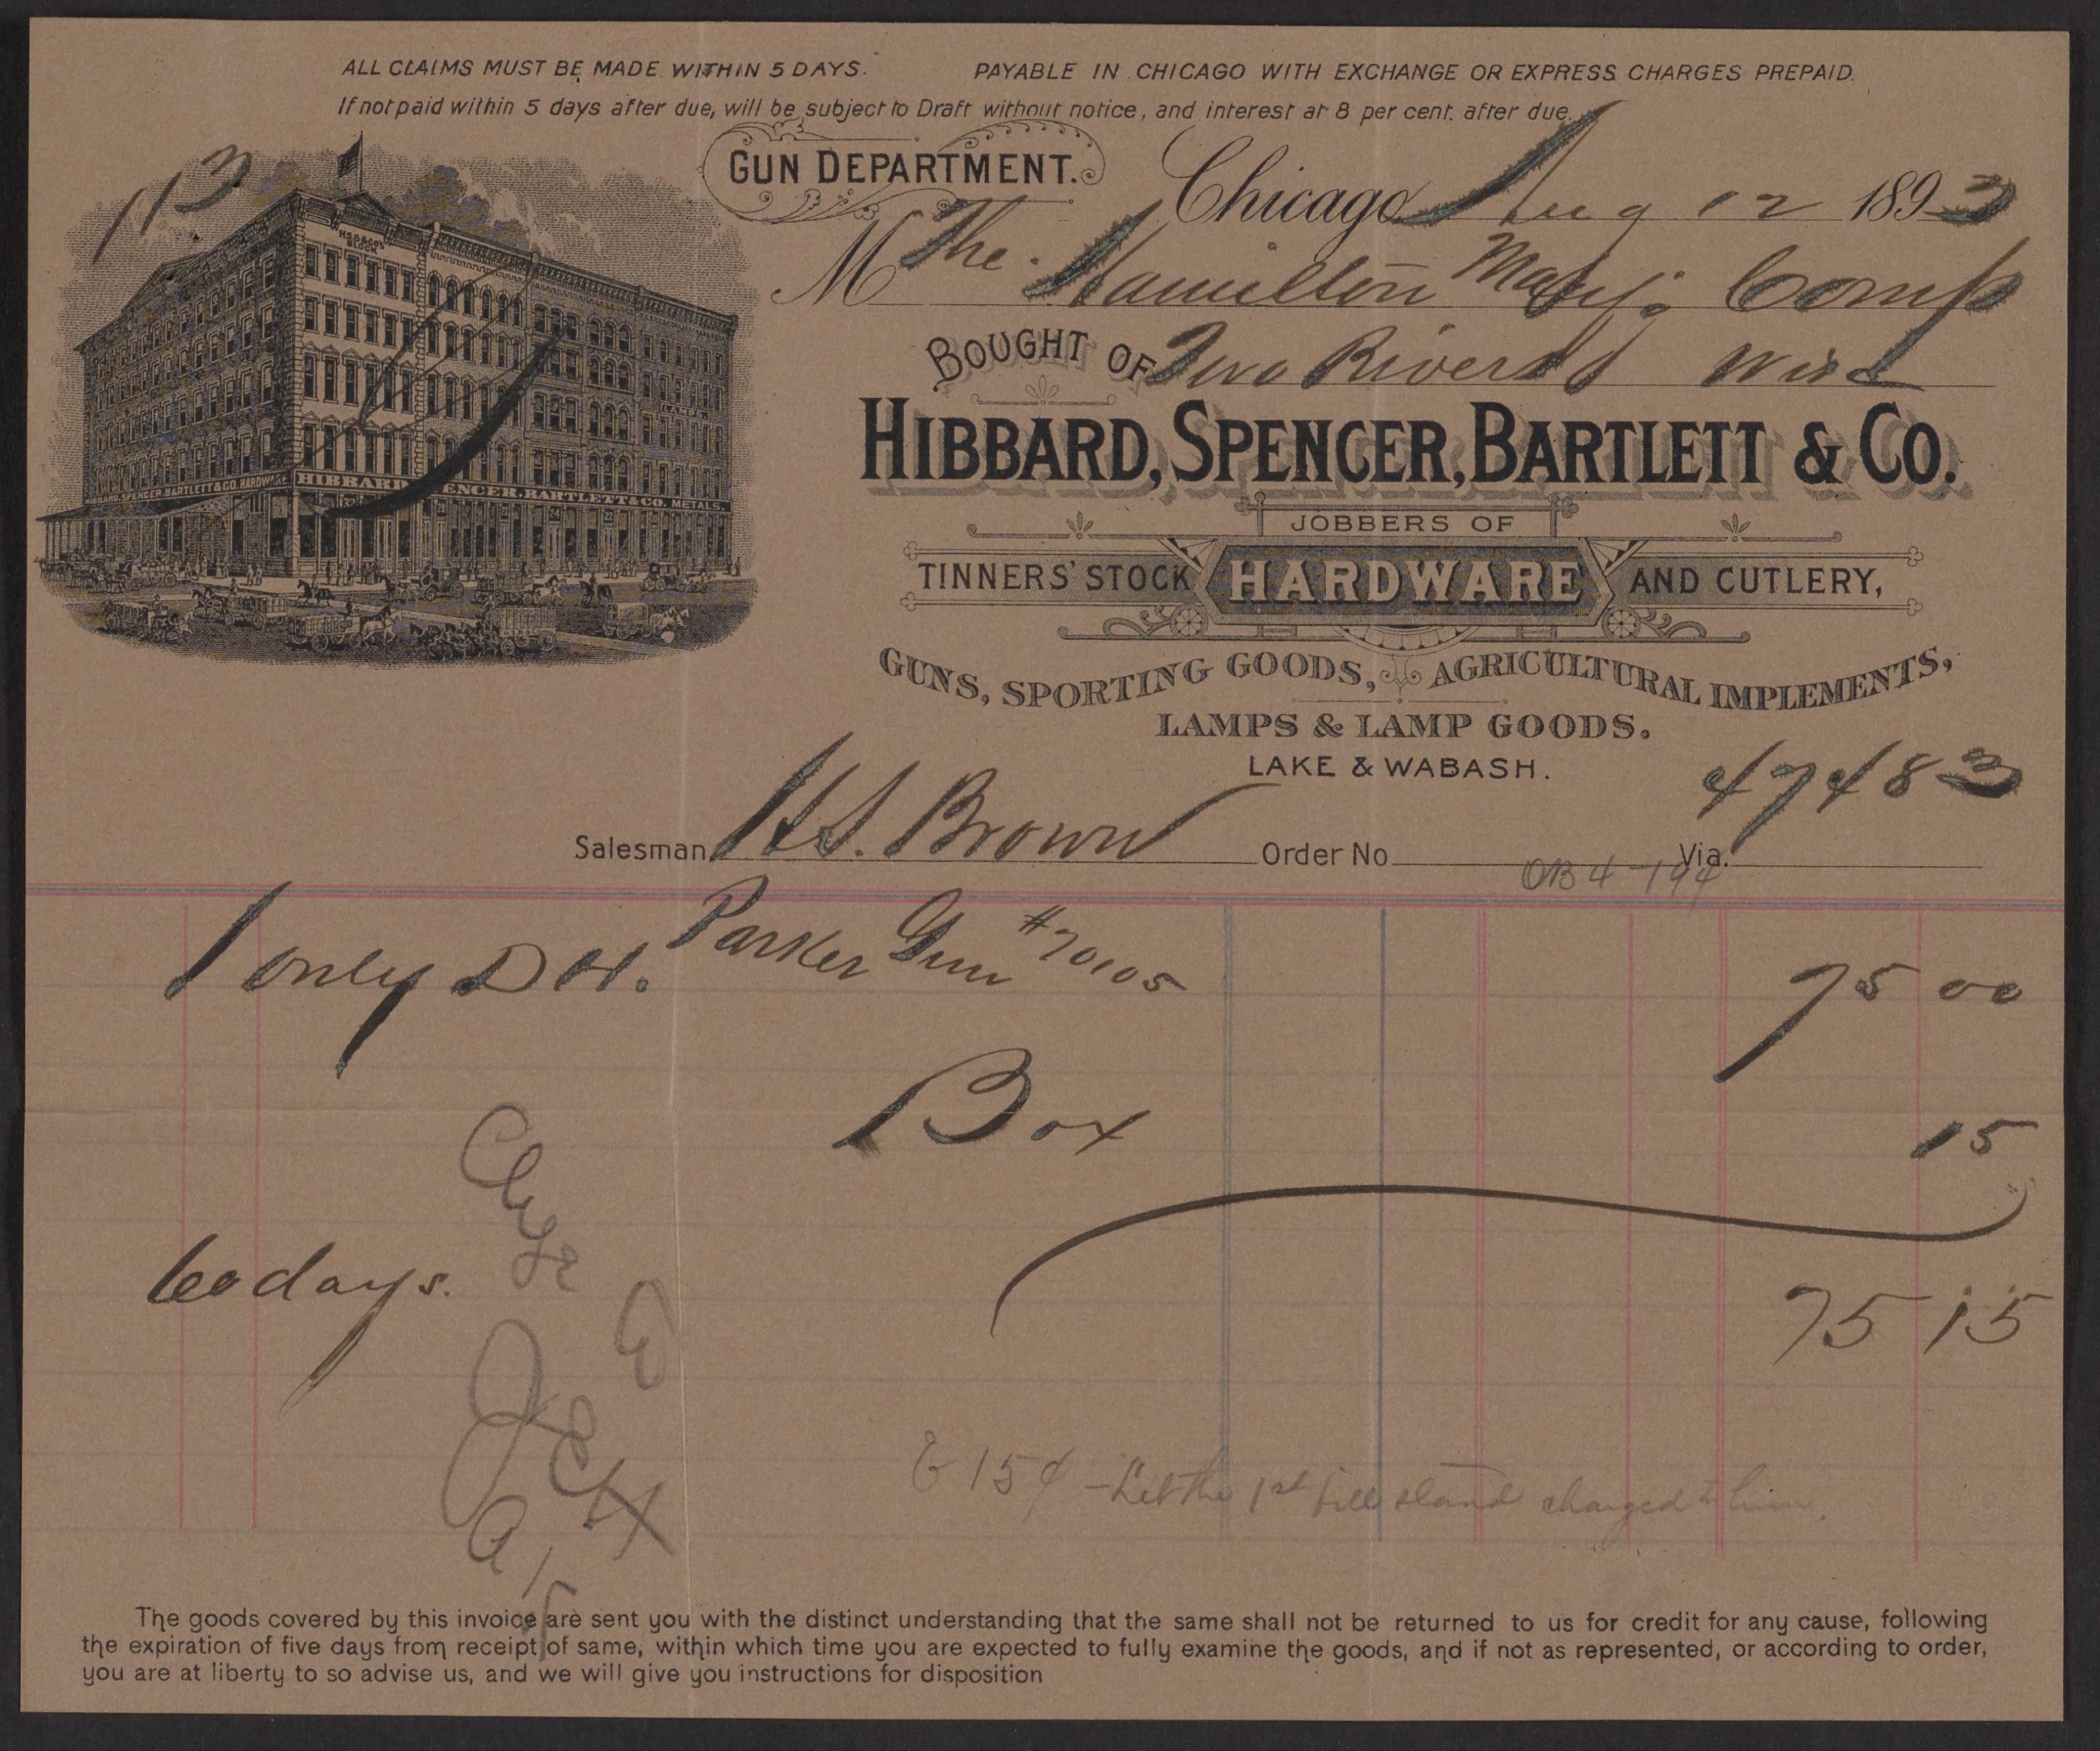 ALL CLAIMS MUST BE MADE WITHIN 5 DAYS. PAYABLE IN CHICAGO WITH EXCHANGE OR EXPRESS CHARGES PREPAID.
If not paid within 5 days after due, will be subject to Draft without notice, and interest at 8 per cent. after due.
113
GUN DEPARTMENT.
Chicago Aug 12 1893
M The Hamilton Manfg. Comp
BOUGHT OF Two Rivers Wis
HIBBARD, SPENCER, BARTLETT & CO.
H.S.B.& CO'S BLOCK
LAMPS.
HIBBARD, SPENCER, BARTLETT & CO. HARDWARE
HIBBARD SPENCER, BARTLETT & CO. METALS.
JOBBERS OF
TINNERS' STOCK HARDWARE AND CUTLERY,
GUNS, SPORTING GOODS, AGRICULTURAL IMPLEMENTS,
LAMPS & LAMP GOODS.
LAKE & WABASH.
47483
Salesman H.S. Brown Order No Via.
OB 4-194
1 only D H. Parker Gun #70105 75 00
Box 15
60 days.
75 15
Chge
15¢ - Let the 1st bill stand charged to him.
The goods covered by this invoice are sent you with the distinct understanding that the same shall not be returned to us for credit for any cause, following
the expiration of five days from receipt of same, within which time you are expected to fully examine the goods, and if not as represented, or according to order,
you are at liberty to so advise us, and we will give you instructions for disposition